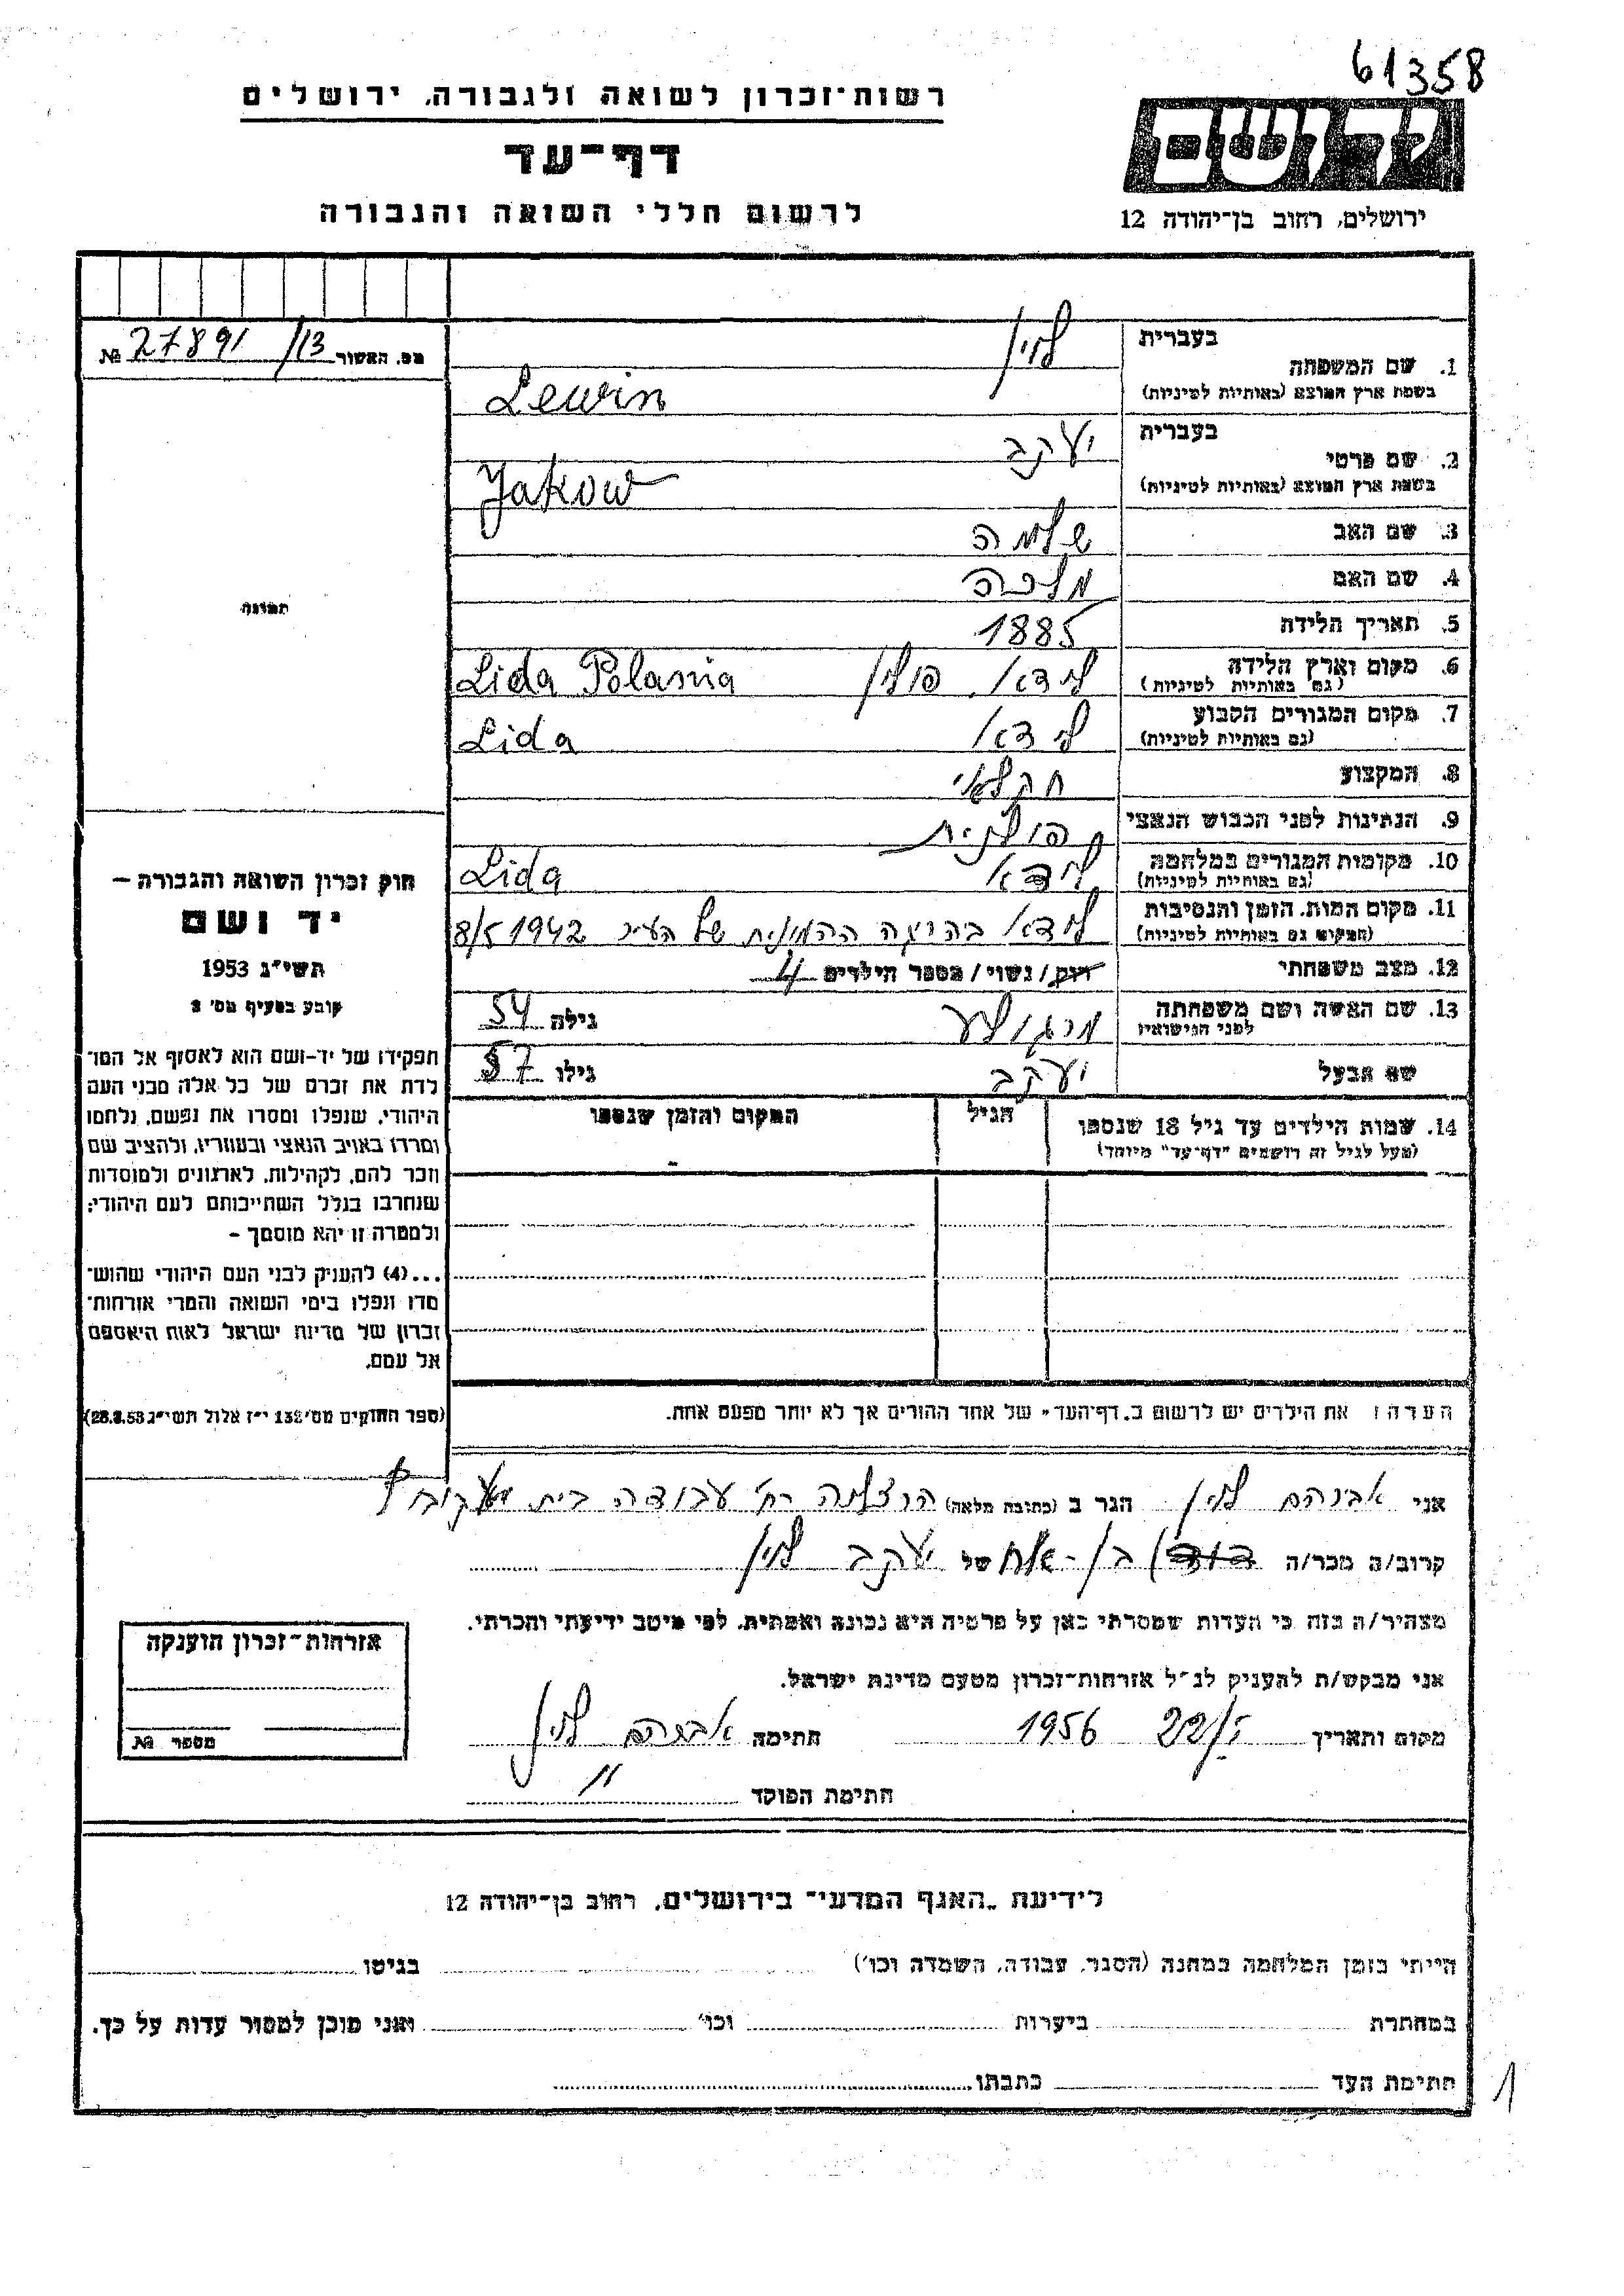 61358
רשות-זכרון לשואה ולגבורה, ירושלים
דף-עד
לרשום חללי השואה והגבורה
יד ושם
ירושלים, רחוב בן-יהודה 12
מס. האשור 13/ 27891 №
תמונה
חוק זכרון השואה והגבורה –
יד ושם
תשי"ג 1953
קובע בסעיף מס' 2
תפקידו של יד-ושם הוא לאסוף אל המו-
לדת את זכרם של כל אלה מבני העם
היהודי, שנפלו ומסרו את נפשם, נלחמו
ומרדו באויב הנאצי ובעוזריו, ולהציב שם
וזכר להם, לקהילות, לארגונים ולמוסדות
שנחרבו בגלל השתייכותם לעם היהודי;
ולמטרה זו יהא מוסמך –
...(4) להעניק לבני העם היהודי שהוש-
מדו ונפלו בימי השואה והמרי אזרחות-
זכרון של מדינת ישראל לאות היאספם
אל עמם.
(ספר החוקים מס' 132 י"ז אלול תשי"ג 28.8.53)
1. שם המשפחה
בעברית לוין
בשפת ארץ המוצא (באותיות לטיניות) Lewin
2. שם פרטי
בעברית יעקב
בשפת ארץ המוצא (באותיות לטיניות) Jakow
3. שם האב שלמה
4. שם האם מלכה
5. תאריך הלידה 1885
6. מקום וארץ הלידה (גם באותיות לטיניות) לידא, פולין Lida Polania
7. מקום המגורים הקבוע (גם באותיות לטיניות) לידא Lida
8. המקצוע חקלאי
9. הנתינות לפני הכבוש הנאצי פולנית
10. מקומות המגורים במלחמה (גם באותיות לטיניות) לידא Lida
11. מקום המות, הזמן והנסיבות (המקום גם באותיות לטיניות) לידא בהריגה ההמונית של העיר 8/5 1942
12. מצב משפחתי רווק/נשוי/מספר הילדים 4
13. שם האשה ושם משפחתה לפני הנישואין מרגולע גילה 54
שם הבעל יעקב גילו 57
14. שמות הילדים עד גיל 18 שנספו
(מעל לגיל זה רושמים "דף-עד" מיוחד)
הגיל
המקום והזמן שנספו
הערה: את הילדים יש לרשום ב"דף-העד" של אחד ההורים אך לא יותר מפעם אחת.
אני אברהם לוין הגר ב (כתובת מלאה) הרצליה רח' עבודה בית
קרוב/ה מכר/ה דוד) בן-אח של יעקב לוין
מצהיר/ה בזה כי העדות שמסרתי כאן על פרטיה היא נכונה ואמתית, לפי מיטב ידיעתי והכרתי.
אני מבקש/ת להעניק לנ"ל אזרחות-זכרון מטעם מדינת ישראל.
מקום ותאריך 22/I 1956 חתימה אברהם לוין
חתימת הפוקד "
אזרחות-זכרון הוענקה
מספר №
לידיעת "האגף המדעי" בירושלים, רחוב בן-יהודה 12
הייתי בזמן המלחמה במחנה (הסגר, עבודה, השמדה וכו') בגיטו
במחתרת ביערות וכו' ואני מוכן למסור עדות על כך.
חתימת העד כתבתו
1